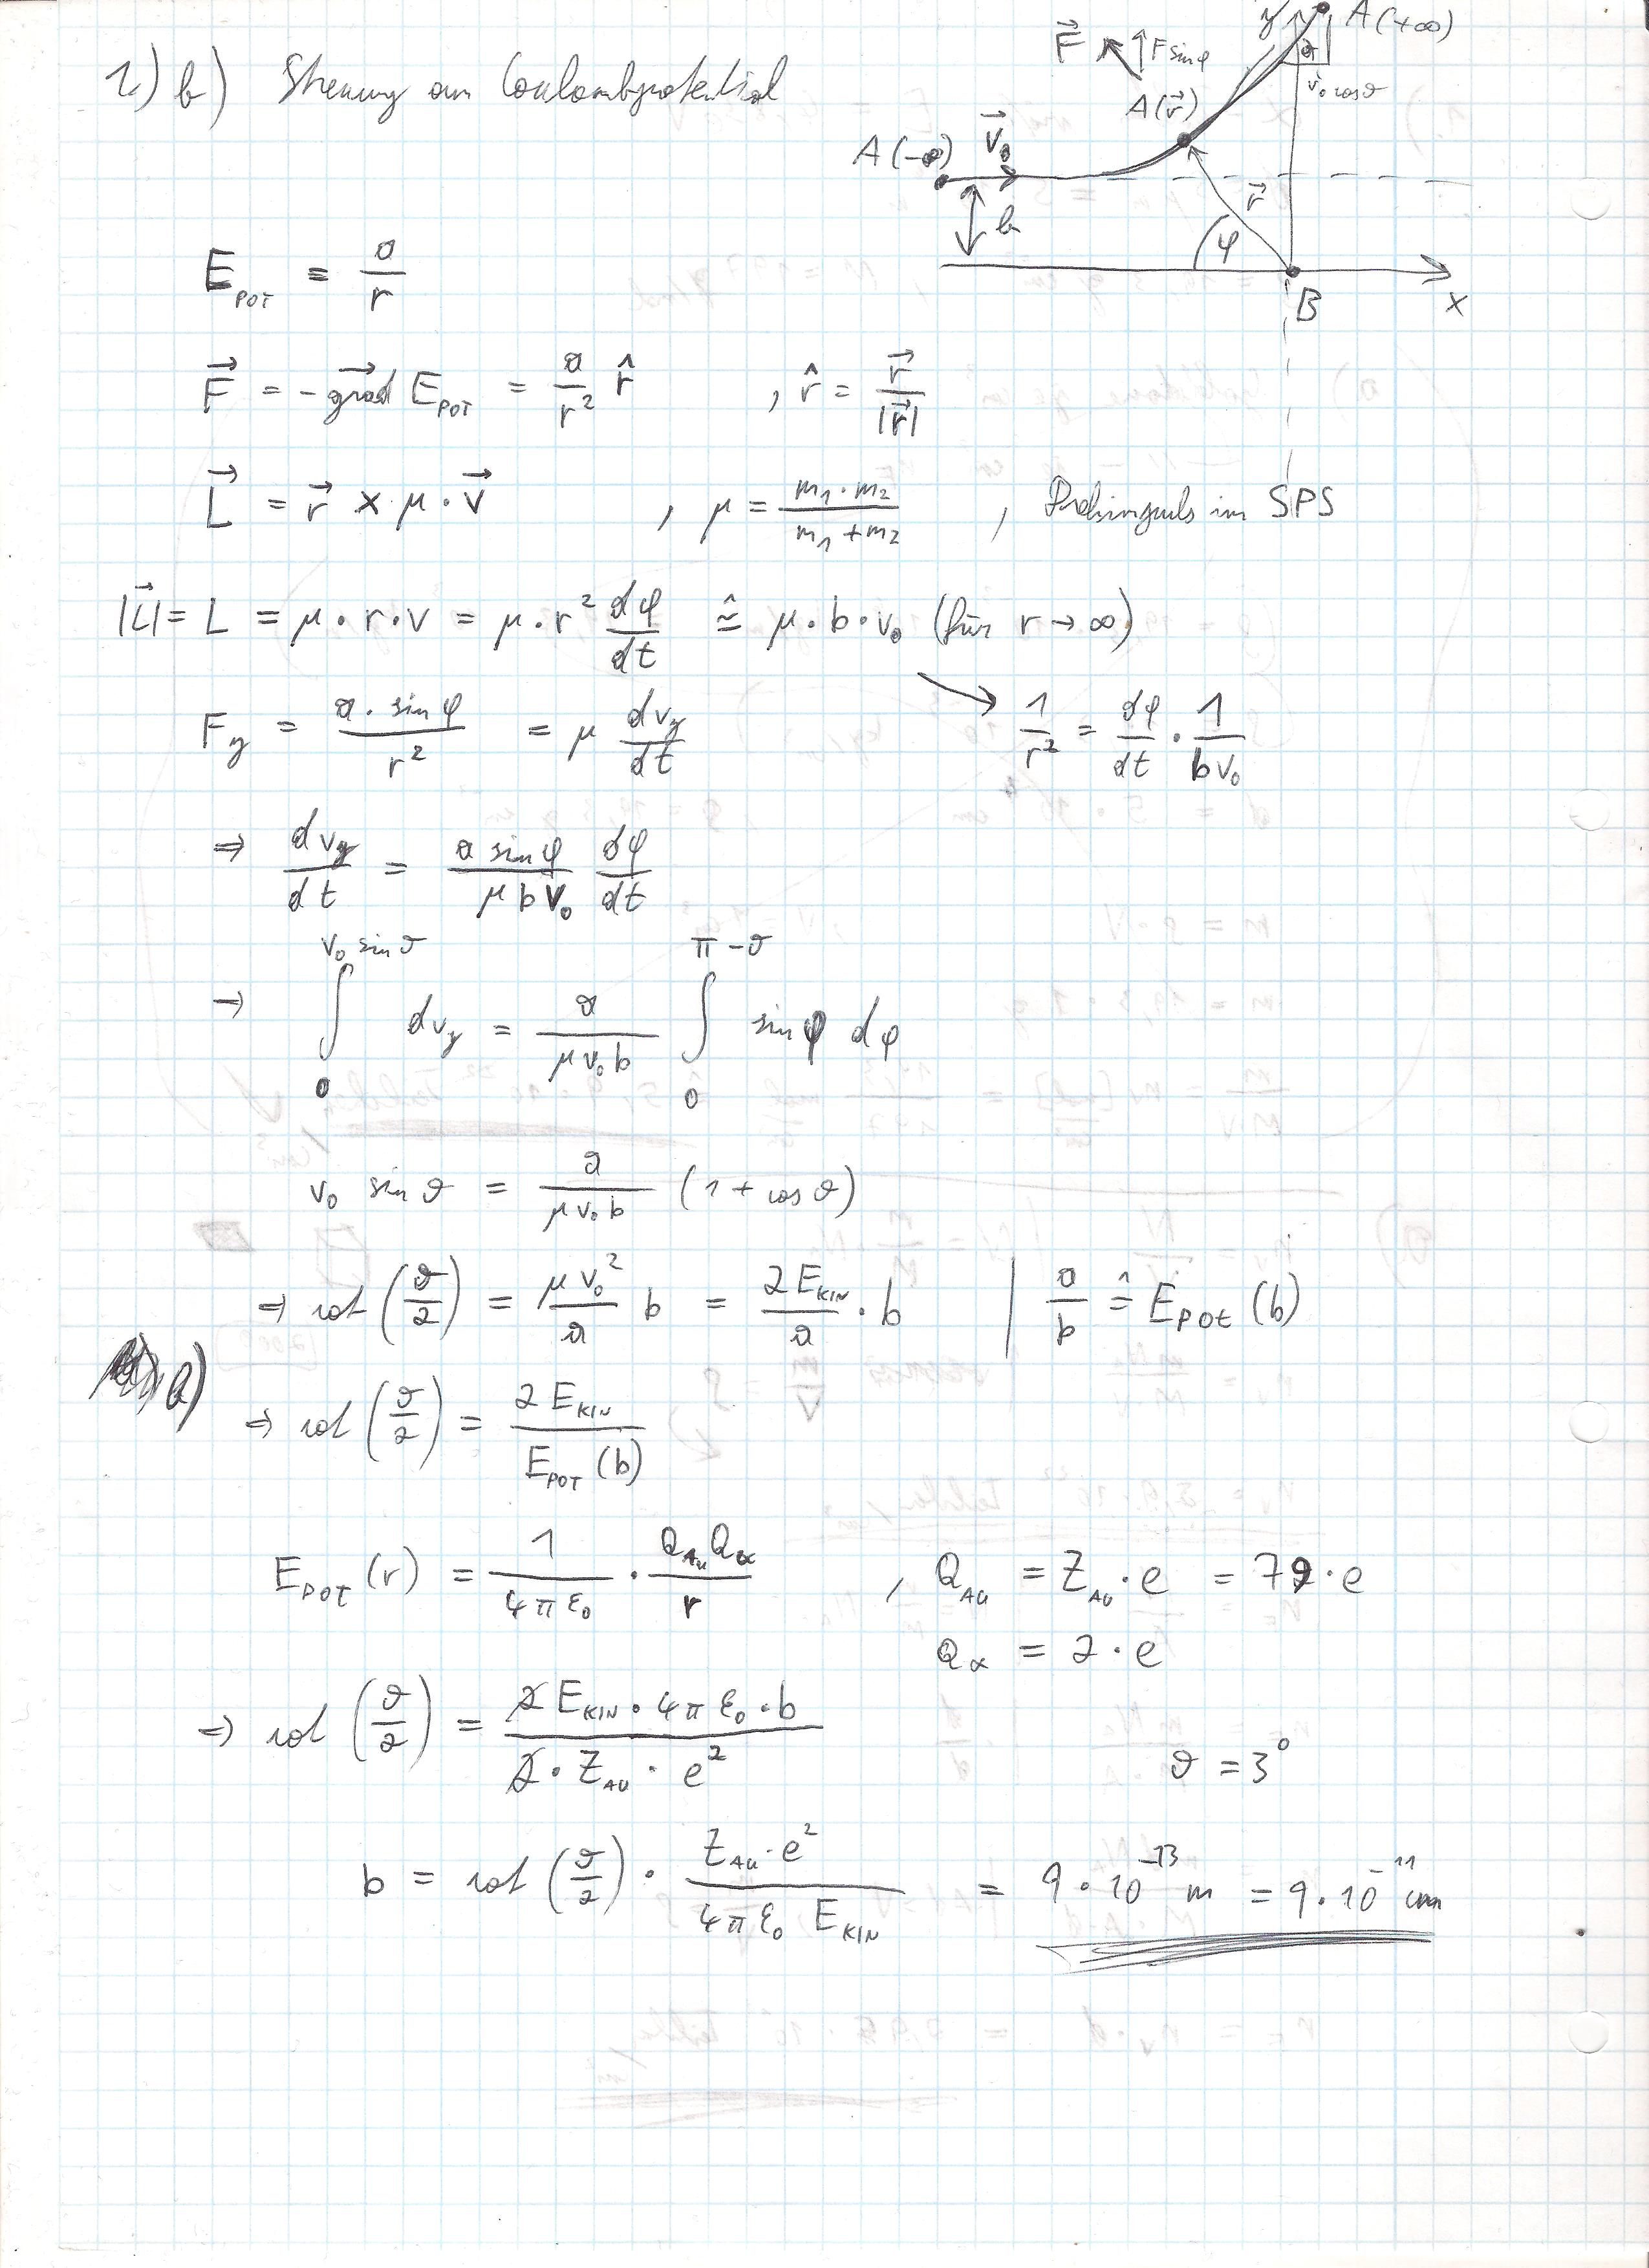 1) b) Streuung am Coulombpotential
F⃗ F sinφ y A(+∞)
ϑ
v₀ cosϑ
A(r⃗)
A(-∞) v⃗₀
b φ r⃗
B x
E_POT = a/r
F⃗ = -grad⃗ E_POT = a/r² r̂ , r̂ = r⃗/|r⃗|
L⃗ = r⃗ × μ·v⃗ , μ = (m₁·m₂)/(m₁+m₂) , Drehimpuls im SPS
|L⃗| = L = μ·r·v = μ·r² dφ/dt ≙ μ·b·v₀ (für r→∞)
F_y = (a·sinφ)/r² = μ dv_y/dt → 1/r² = dφ/dt · 1/(bv₀)
⇒ dv_y/dt = (a sinφ)/(μbv₀) dφ/dt
→ ∫₀^(v₀ sinϑ) dv_y = a/(μv₀b) ∫₀^(π-ϑ) sinφ dφ
v₀ sinϑ = a/(μv₀b) (1+cosϑ)
⇒ cot(ϑ/2) = (μv₀²)/a b = (2E_KIN)/a · b | a/b ≙ E_POT(b)
⇒ cot(ϑ/2) = (2E_KIN)/(E_POT(b))
E_POT(r) = 1/(4πε₀) · (Q_Au Q_α)/r , Q_AU = Z_AU·e = 79·e
Q_α = 2·e
⇒ cot(ϑ/2) = (2E_KIN·4πε₀·b)/(2·Z_AU·e²) ϑ = 3°
b = cot(ϑ/2) · (Z_AU·e²)/(4πε₀ E_KIN) = 9·10⁻¹³ m = 9·10⁻¹¹ cm